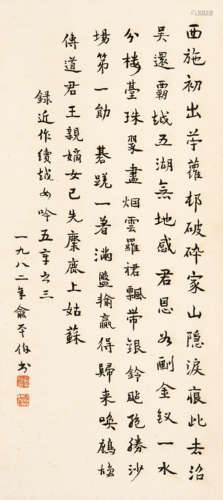 西施初出苧蘿邨破碎家山隱淚痕此去沼
吳還霸越五湖無地感君恩金釵一水
分樓臺珠翠盡烟雲羅裙飄帶銀鈴颭絕勝沙
場第一勛碁蹉一著滿盤輸贏得歸来喚鷓鴣
傳道君王親嫡女已先麋鹿上姑蘇
錄近作續越女吟五章之三
一九八二年俞平伯书